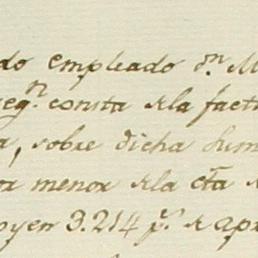 do empleado Dn. M
seg.n consta de la fact
a, sobre dicha sum
or menor de la cta
oyen 9.214 p.s